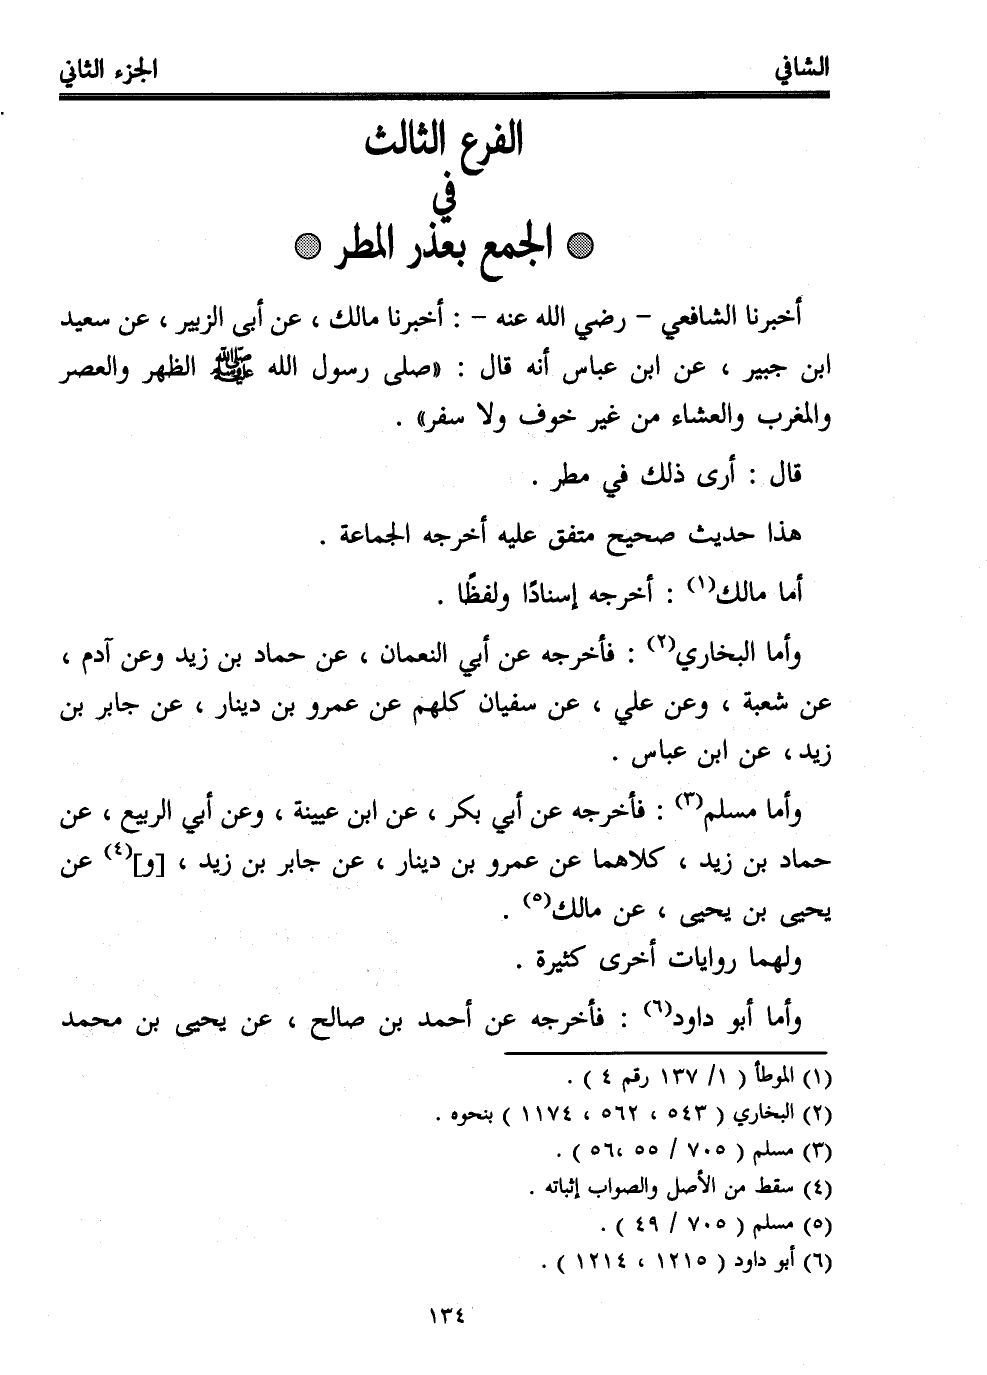 الشافي الجزء الثاني
الفرع الثالث
في
الجمع بعذر المطر
أخبرنا الشافعي - رضي الله عنه - : أخبرنا مالك ، عن أبى الزبير ، عن سعيد
ابن جبير ، عن ابن عباس أنه قال : «صلى رسول الله ﷺ الظهر والعصر
والمغرب والعشاء من غير خوف ولا سفر» .
قال : أرى ذلك في مطر .
هذا حديث صحيح متفق عليه أخرجه الجماعة .
أما مالك(١) : أخرجه إسنادًا ولفظًا .
وأما البخاري(٢) : فأخرجه عن أبي النعمان ، عن حماد بن زيد وعن آدم ،
عن شعبة ، وعن علي ، عن سفيان كلهم عن عمرو بن دينار ، عن جابر بن
زيد ، عن ابن عباس .
وأما مسلم(٣) : فأخرجه عن أبي بكر ، عن ابن عيينة ، وعن أبي الربيع ، عن
حماد بن زيد ، كلاهما عن عمرو بن دينار ، عن جابر بن زيد ، [و](٤) عن
يحيى بن يحيى ، عن مالك(٥) .
ولهما روايات أخرى كثيرة .
وأما أبو داود(٦) : فأخرجه عن أحمد بن صالح ، عن يحيى بن محمد
(١) الموطأ ( ١/ ١٣٧ رقم ٤ ) .
(٢) البخاري ( ٥٤٣ ، ٥٦٢ ، ١١٧٤ ) بنحوه .
(٣) مسلم ( ٧٠٥ / ٥٥ ،٥٦ ) .
(٤) سقط من الأصل والصواب إثباته .
(٥) مسلم ( ٧٠٥ / ٤٩ ) .
(٦) أبو داود ( ١٢١٥ ، ١٢١٤ ) .
١٣٤